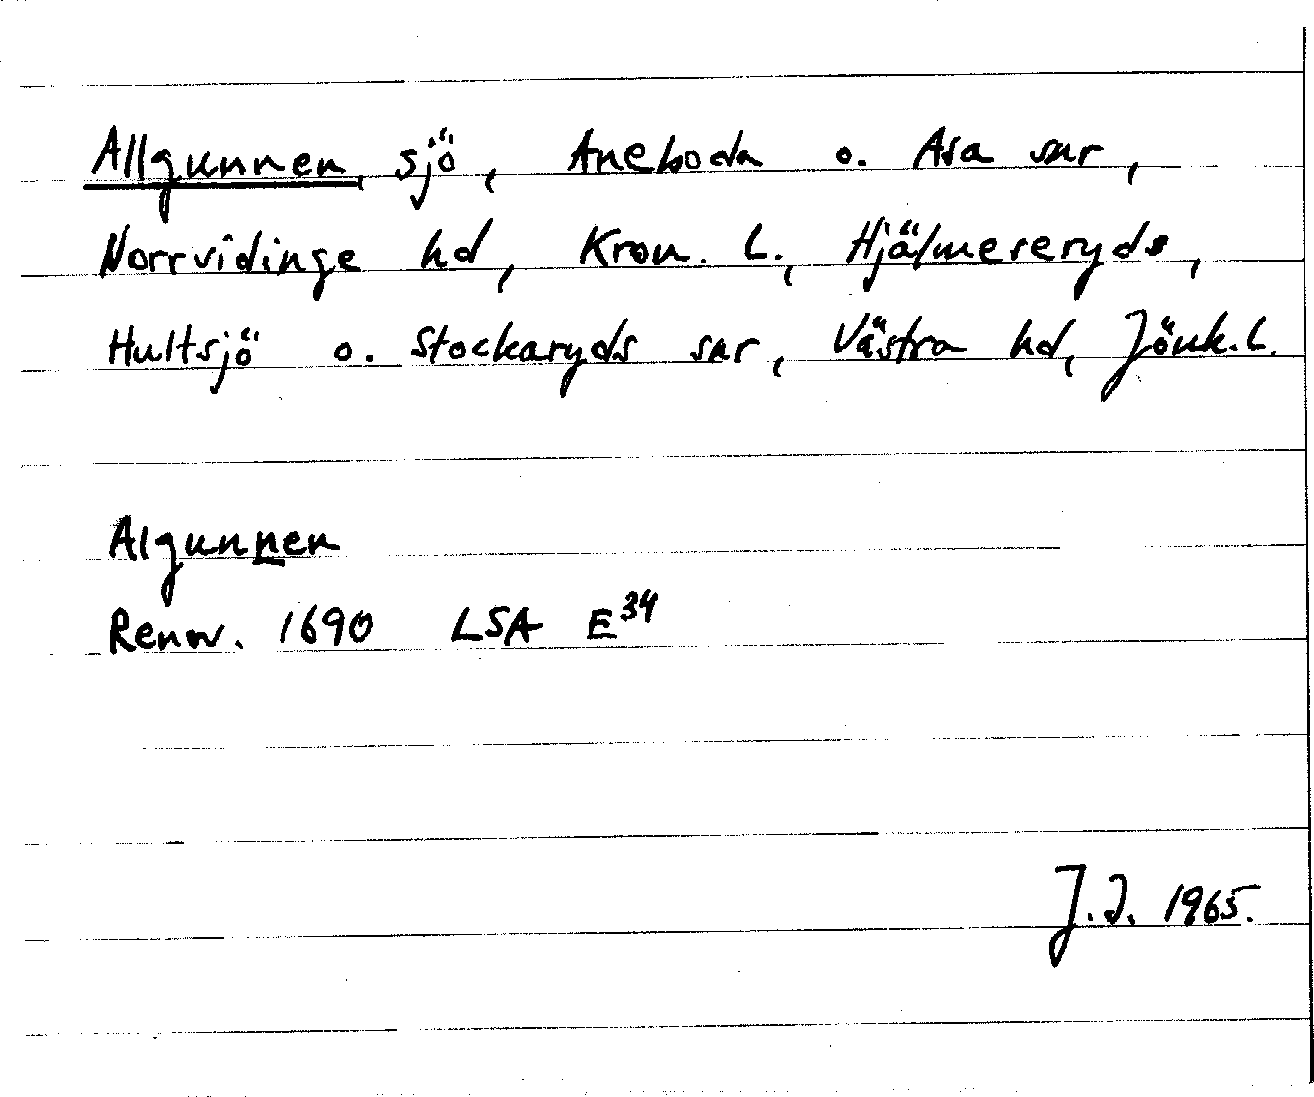 Allgunnen, sjö, Aneboda o. Asa snr,
Norrvidinge hd, Kron. L., Hjälmseryds,
Hultsjö o. Stockaryds snr, Västra hd, Jönk. L.
Algunnen
Renov. 1690 LSA E³⁴
J.I. 1965.